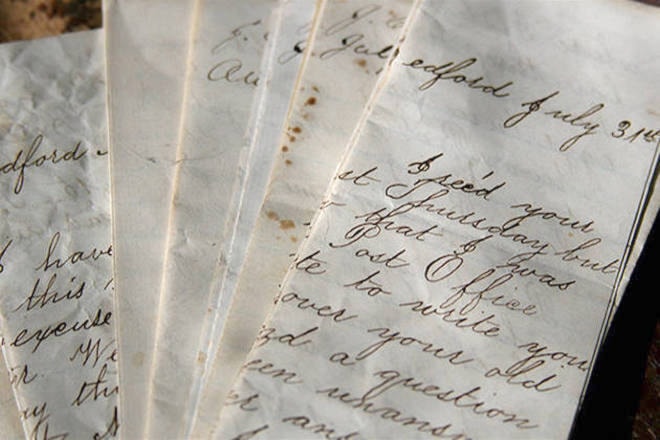 dford
I have
this
excuse
r. We
ay thi
J.
Au
J.
Jul
edford July 31st
I rec'd your
st Thursday but
that I was
Post Office
te to write you
over your old
a question
een unans
er an